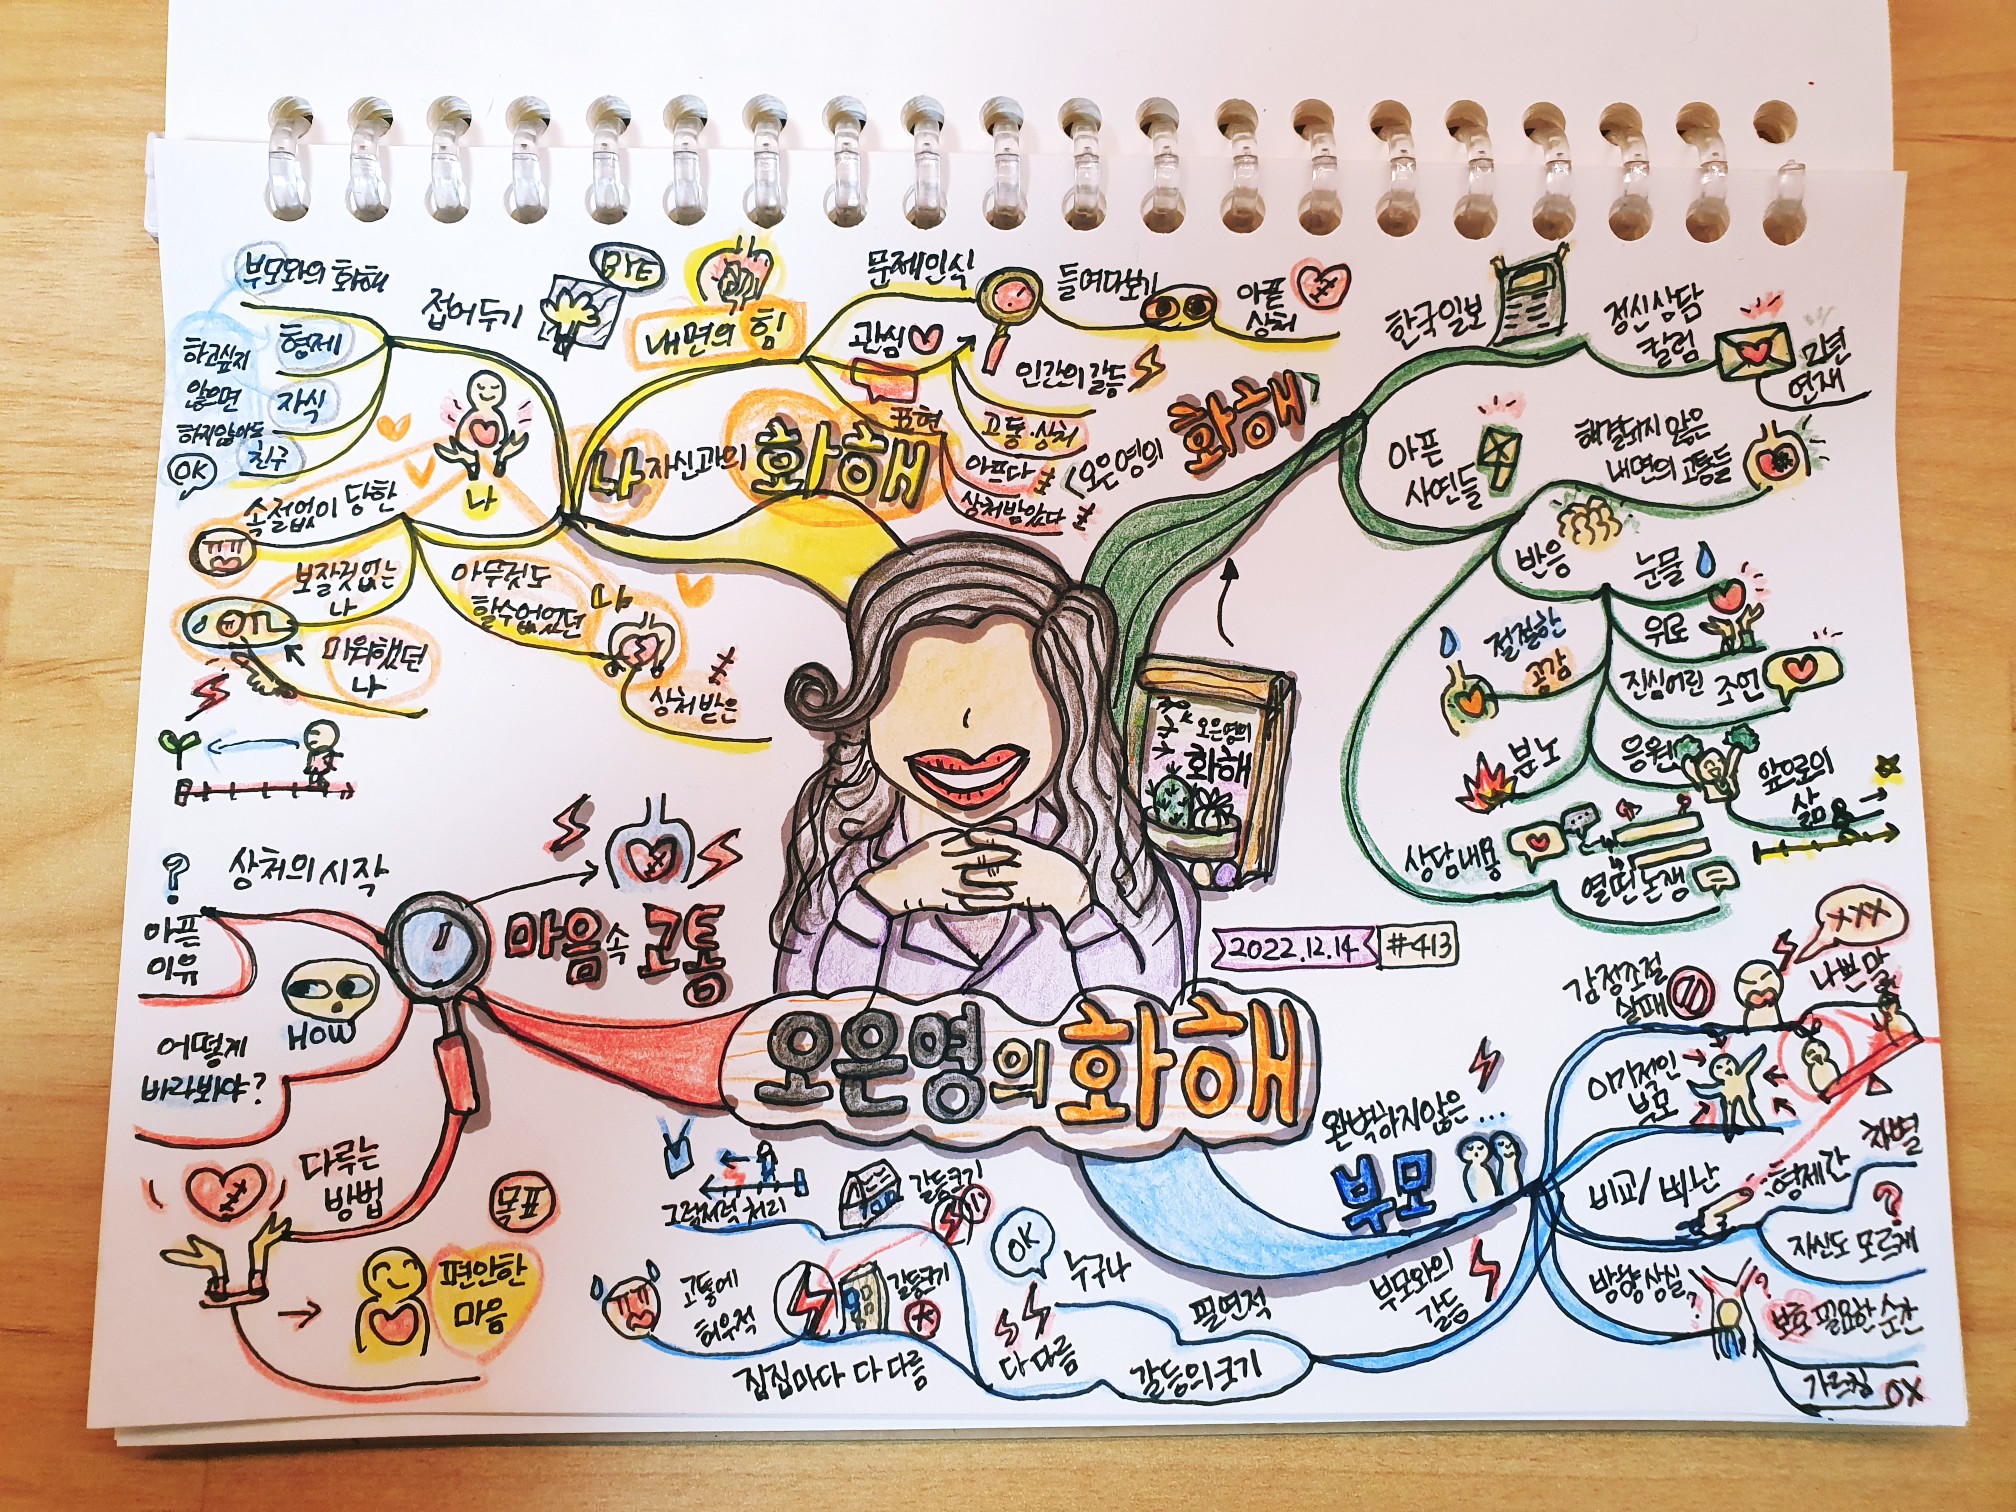 오은영의 화해
2022.12.14
#413
<오은영의
화해>
한국일보
정신상담
칼럼
2년
연재
아픈
사연들
해결되지 않은
내면의 고통들
반응
눈물
위로
진심어린 조언
응원
앞으로의
삶
절절한
공감
분노
상담내용
열띤 논쟁
오은영의
화해
완벽하지않은 ...
부모
감정조절
실패
XXX
나쁜 말
이기적인
부모
비교/비난
형제간
차별
자신도 모르게
방향상실
?
보호 필요한 순간
가르침 OX
부모와의
갈등
필연적
갈등의 크기
누구나
OK
다 다름
갈등크기
그럭저럭 처리
갈등크기
고통에
허우적
집집마다 다 다름
마음 속 고통
?
상처의 시작
아픈
이유
HOW
어떻게
바라봐야?
다루는
방법
목표
편안한
마음
나 자신과의 화해
내면의 힘
문제인식
들여다보기
아픈
상처
관심
인간의 갈등
표현
고통·상처
아프다
상처받았다
접어두기
BYE
부모와의 화해
형제
자식
친구
하고싶지
않으면
하지않아도
OK
나
속절없이 당한
보잘것없는
나
미워했던
나
아무것도
할수없었던
나
상처받은